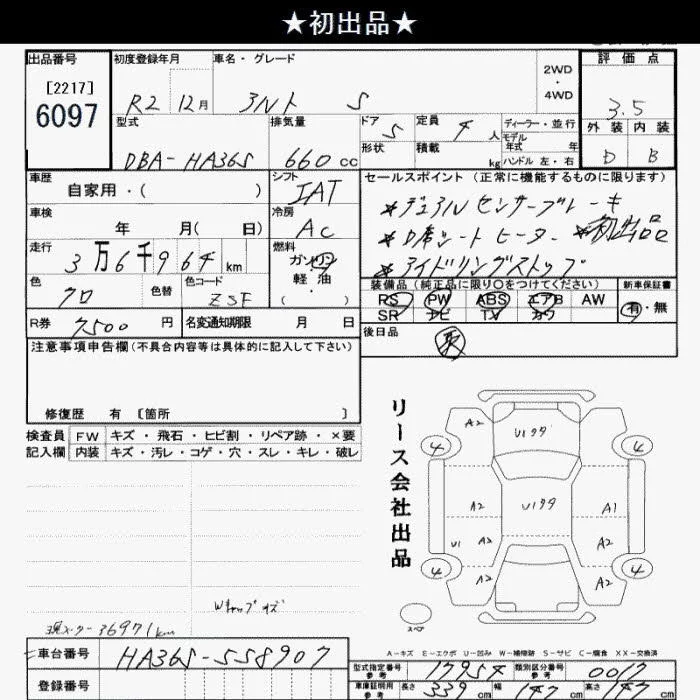 ★初出品★
出品番号 初度登録年月 車名・グレード 2WD・4WD 評価点
[2217]
6097
R2 12月 アルト S 3.5
型式 排気量 ドア 5 定員 4人 ディーラー・並行 外装 内装
モデル年式 年
形状 積載 kg ハンドル 左・右
DBA-HA36S 660cc D B
車歴 シフト IAT セールスポイント(正常に機能するものに限ります)
自家用・( )
*デュアルセンサーブレーキ
車検 年 月( 日) 冷房 AC
*D席シートヒーター *初出品
走行 3万6千964km 燃料 ガソリン・軽油・( )
*アイドリングストップ
色 クロ 色替 色コード ZSF
装備品(純正品に限り○をつけてください) 新車保証書
RS PW ABS エアB AW 有・無
SR ナビ TV カワ
R券 7500円 名変通知期限 月 日
後日品
注意事項申告欄(不具合内容等は具体的に記入して下さい)
修復歴 有 [箇所 ]
検査員記入欄 FW キズ・飛石・ヒビ割・リペア跡・×要
内装 キズ・汚レ・コゲ・穴・スレ・キレ・破レ
リース会社出品
A2 U1タタ
4 4
A2 U1タタ A1
U1 A2 A2
4 4
A2 A2
Wキャップキズ
スペア
現メーター36971km
A-キズ E-エクボ U-凹み W-補修跡 S-サビ C-腐食 XX-交換済
車台番号 HA36S-558907
型式指定番号 参考 17954 類別区分番号 参考 0017
登録番号
車庫証明用 参考 長さ 339cm 幅 147cm 高さ 147cm